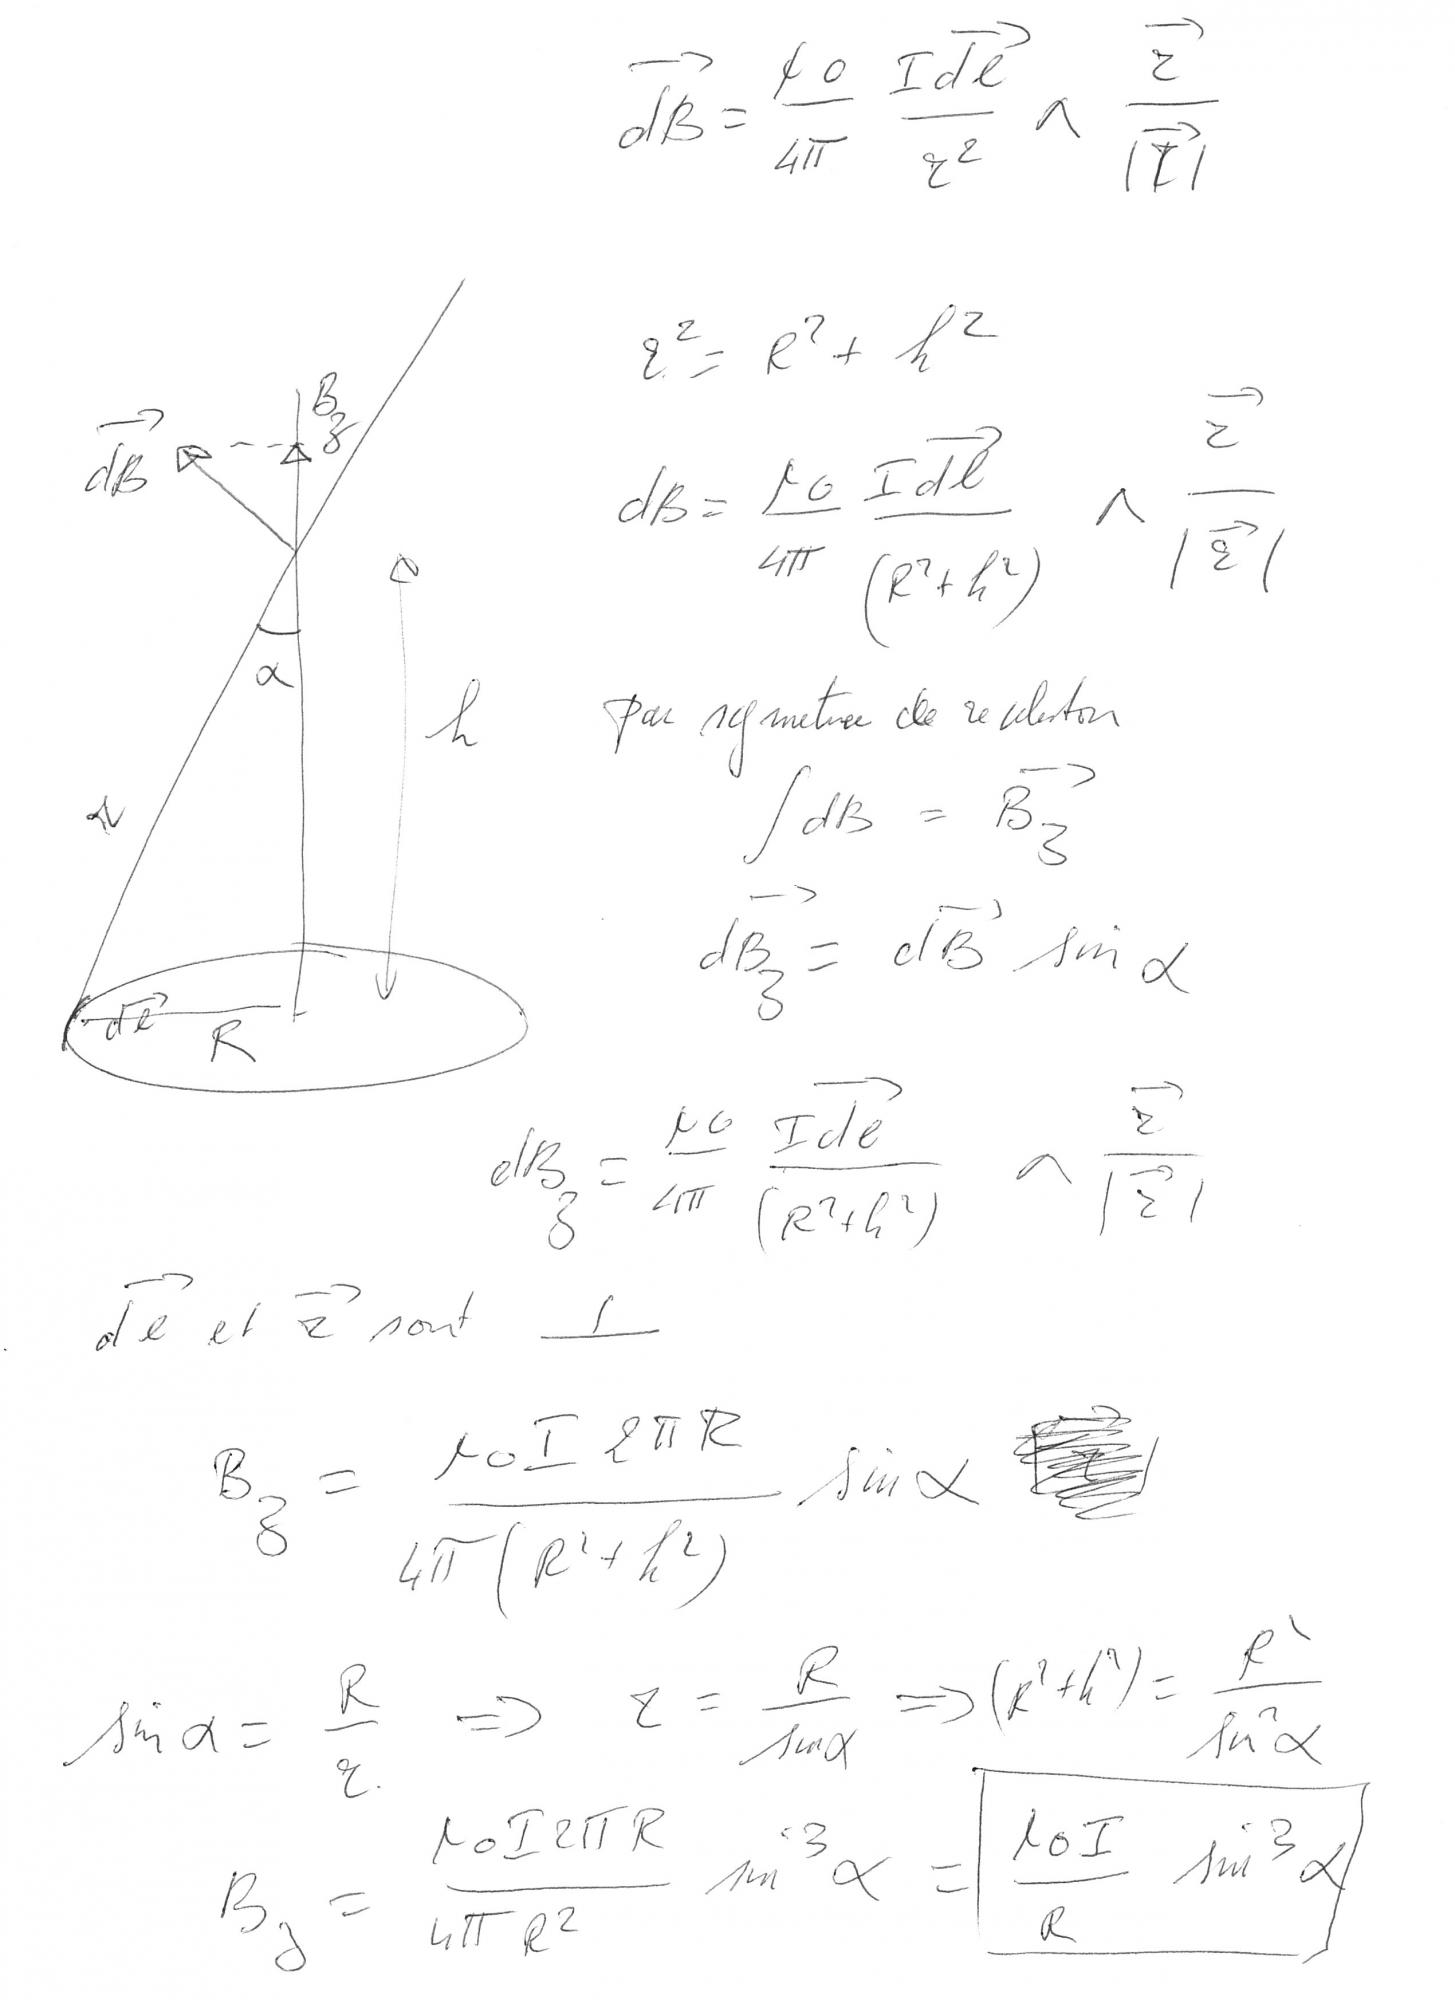 dB⃗ = μ0/4π I dl⃗/r² ∧ r⃗/|r⃗|
r² = R² + h²
B_z
dB⃗
dB = μ0/4π I dl⃗/(R²+h²) ∧ r⃗/|r⃗|
α
h
par symetrie de
∫dB = B_z⃗
r
dB_z⃗ = dB⃗ sin α
dl⃗
R
dB_z = μ0/4π I dl⃗/(R²+h²) ∧ r⃗/|r⃗|
dl⃗ et r⃗ sont ⊥
B_z = μ0 I 2πR/4π(R²+h²) sin α
sin α = R/r ⇒ r = R/sin α ⇒ (R²+h²) = R²/sin² α
B_z = μ0 I 2πR/4π R² sin³ α = μ0 I/R sin³ α